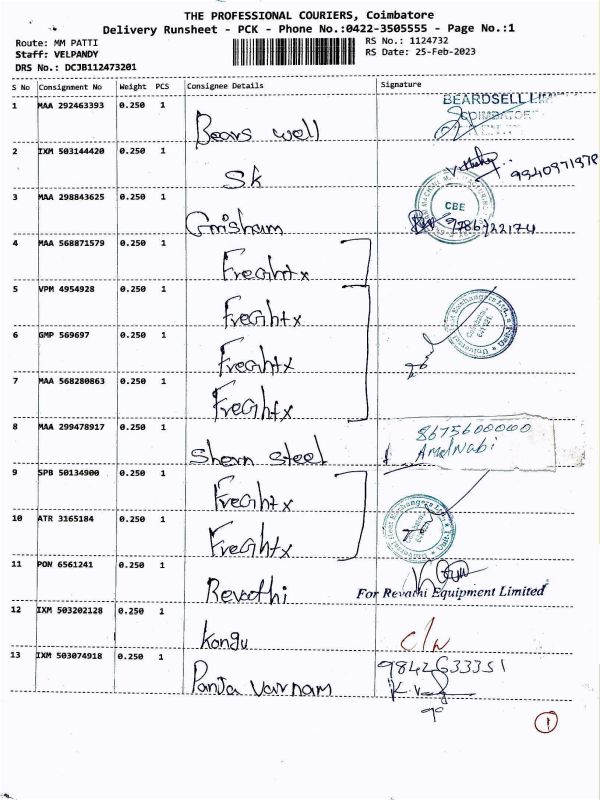 THE PROFESSIONAL COURIERS, Coimbatore
Delivery Runsheet - PCK - Phone No.:0422-3505555 - Page No.:1
Route: MM PATTI
RS No.: 1124732
Staff: VELPANDY
RS Date: 25-Feb-2023
DRS No.: DCJB112473201
S No Consignment No Weight PCS Consignee Details Signature
1 MAA 292463393 0.250 1 Bears well BEARDSELL LIMI
COIMBATORE
2 IXM 503144420 0.250 1 Sk 9940971978
3 MAA 298843625 0.250 1 Grisham CBE 9786722174
4 MAA 568871579 0.250 1 Freahtx
5 VPM 4954928 0.250 1 Freahtx
6 GMP 569697 0.250 1 Freahtx
7 MAA 568280863 0.250 1 Freahtx
8 MAA 299478917 0.250 1 Shern steel 8675600000
Amalnabi
9 SPB 50134900 0.250 1 Freahtx
10 ATR 3165184 0.250 1 Freahtx
11 PON 6561241 0.250 1 Revathi For Revathi Equipment Limited
12 IXM 503202128 0.250 1 Kongu C/N
13 IXM 503074918 0.250 1 Panja varnam 9842633351
1